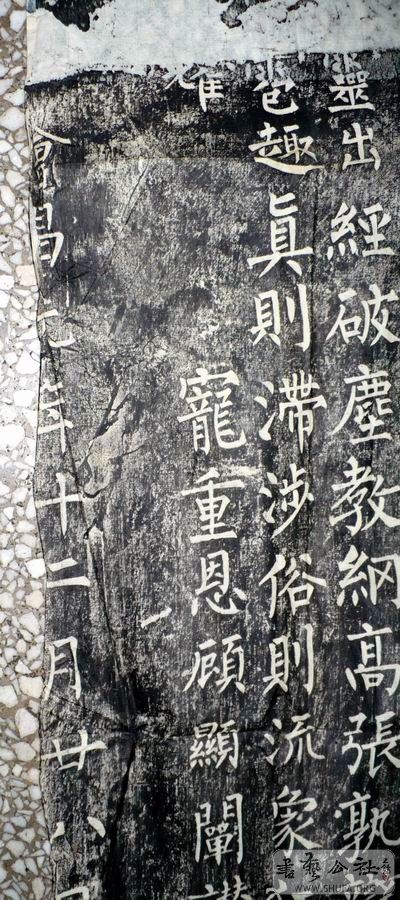 靈出經破塵教網高張孰
雹趣真則滯涉俗則流象
寵重恩顧顯闡
會昌元年十二月廿八
書藝公社
WWW.SHUFA.ORG